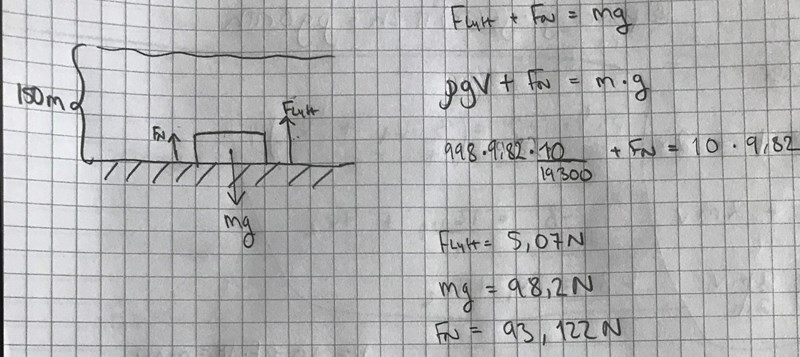 150m
FN
FLyft
mg
FLyft + FN = mg
ρgV + FN = m·g
998·9,82·10/19300 + FN = 10·9,82
FLyft = 5,07N
mg = 98,2N
FN = 93,122N